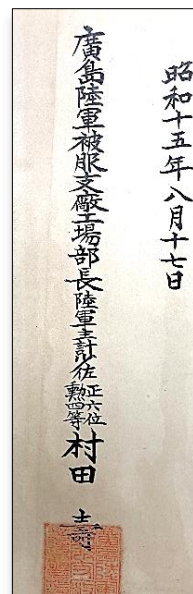 昭和十五年八月十七日
廣島陸軍被服支廠工場部長陸軍主計少佐正六位勲四等村田壽